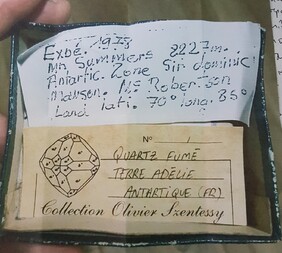 Expé. 1938
Mn Summers 8227m.
Antartic Zone Sir dominic
Mawson. Ms Robertson
Land lati. 70° long. 85°
N°
QUARTZ FUMÉ
TERRE ADÉLIE
ANTARTIQUE (FR)
Collection Olivier Szentessy